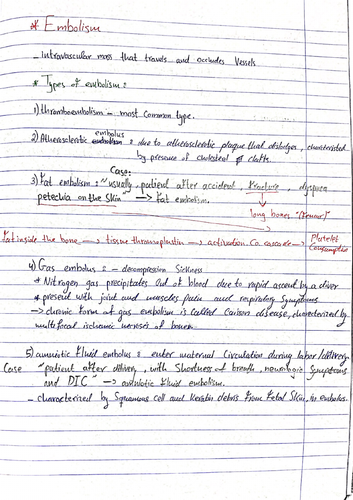 * Embolism
- Intravascular mass that travels and occludes Vessels
* Types of embolism:
1) thromboembolism - most common type.
2) Atherosclerotic embolus : due to atherosclerotic plaque that dislodges, characterized
by presence of cholesterol clefts.
Case:
3) Fat embolism: "usually, patient after accident, fracture, dyspnea
petechia on the skin" → Fat embolism.
long bones "Femur"
Fat inside the bone → tissue thromoplastin → activation Co. cascade → Platelet
Consumption
4) Gas embolus : - decompression Sickness
* Nitrogen gas precipitates Out of blood due to rapid ascent by a diver
* present with joint and muscles pain and respiratory symptoms
→ chronic form of gas embolism is called Caison disease, characterized by
multifocal ischemic necrosis of bones.
5) amniotic Fluid embolus : enter maternal Circulation during labor/delivery
Case "patient after delivery, with Shortness of breath, neurologic Symptoms
and DIC" → amniotic fluid embolism.
- characterized by Squamous cell and Keratin debris From Fetal Skin, in embolus.